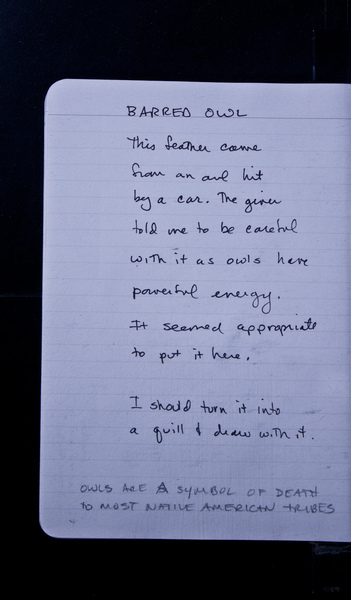 BARRED OWL
This feather came
from an owl hit
by a car. The giver
told me to be careful
with it as owls have
powerful energy.
It seemed appropriate
to put it here.
I should turn it into
a quill & draw with it.
OWLS ARE A SYMBOL OF DEATH
to MOST NATIVE AMERICAN TRIBES